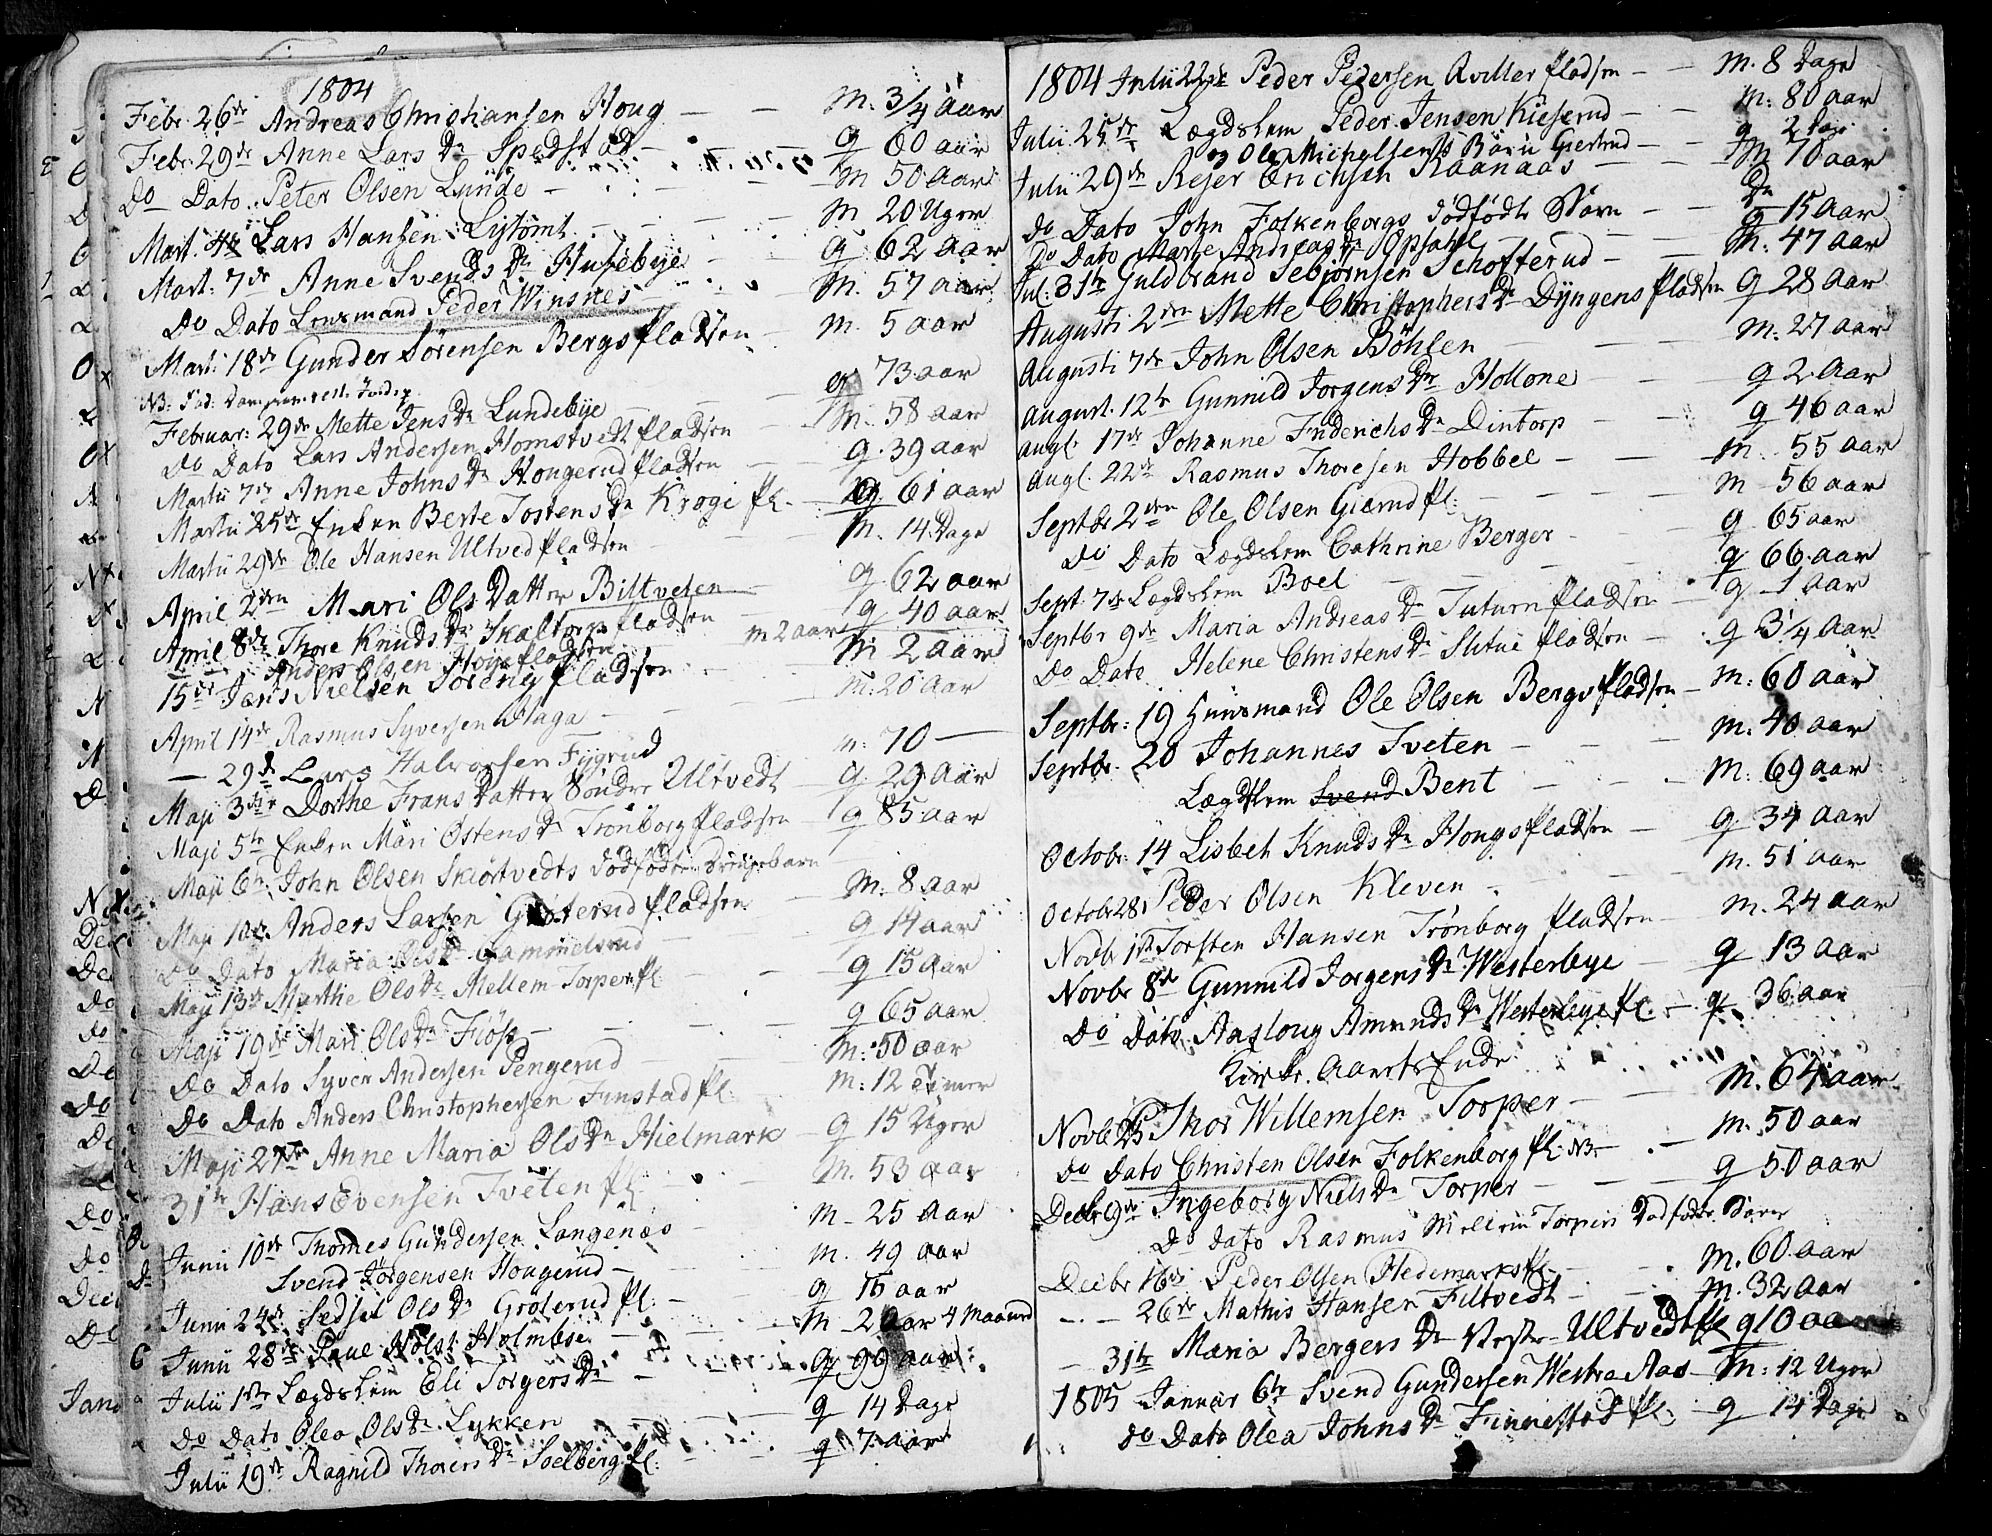 1804
Febr: 26de Andreas Christiansen Houg — — M: 3/4 aar
Febr: 29de Anne Lars Dr Spedstad — q 60 aar
Do Dato Peter Olsen Lunde — M 50 aar
Mart: 4de Lars Hansen Lytomt — M 20 Uger
Mart: 7de Anne Svends Dr Husebye — q 62 aar
Do Dato Lensmand Peder Winsnes — M. 57 aar
Mart: 18de Gunder Sörensen Bergs pladsen — M. 5 aar
NB:
Februar: 29de Mette Jens Dr Lundebye — q 73 aar
Do Dato Lars Andersen Homstvedt pladsen — M: 58 aar
Martii 7de Anne Johns Dr Hougerud pladsen — q. 39 aar
Martii 25de Enken Berte Tostens Dr Krogi pl. — q. 61 aar
Martii 29de Ole Hansen Ultved pladsen — M. 14 Dage
April 2den Mari Ols Datter Biltveten — q. 62 aar
April 8de Thore Knuds Dr Skaltorp pladsen — q 40 aar
Anders Olsen Høje pladsen m 2 aar
15de Jens Nielsen Soreng pladsen — M 2 aar
April 14de Rasmus Syversen Haga — M: 20 aar
— 29de Lars Halvorsen Fygrud m: 70 —
Maji 3die Dorthe Frans Datter Söndre Ultvedt — q. 29 aar
Maji 5te Enken Mari Östens Dr Trönborg pladsen — q 85 aar
Maji 6te John Olsen Skiörtvedts dödfödte Drengebarn
Maji 10de Anders Larsen Groterud pladsen — M: 8 aar
Do Dato Maria Ols Dr Gammelsrud — q 14 aar
Maji 13de Marthe Ols Dr Mellem Torper pl — q 15 aar
Maji 19de Mari Ols Dr Fiöss — q 65 aar
Do Dato Syver Andersen Pengerud — M: 50 aar
Do Dato Anders Christophersen Finstad pl. M: 12 Timer
Maji 27de Anne Maria Ols Dr Hielmark — q 15 Uger
31te Hans Evensen Tveten pl — M. 53 aar
Junii 10de Thomes Gundersen Langenæs — M — 25 aar
Svend Jörgensen Hougerud — M. 49 aar
Junii 24de Sedsel Ols Dr Groterud pl: — q 15 aar
Junii 28de Poul Holmbse — M 2 aar 4 Maaned
Julii 1ste Lægdslem Eli Torgers Dr — q 99 aar
Do Dato Olea Ols Dr Lykken — q 14 Dage
Julii 19de Ragnild Thorers Dr Soelberg pl: q 7 aar
1804 Julii 22de Peder Pedersen Aviller pladsen — — M. 8 Dage
Julii 25de Lægdslem Peder Jensen Kieserud — M: 80 aar
Ole Michelsens Barn Giertrud — q 2 Dage
Julii 29de Rejer Erichsen Raanaas — M 70 aar
Do Dato John Folkenborgs dödfödte Barn — Dr
Do Dato Marie Andreas Dr Opsahl — q 15 aar
Jul: 31te Guldbrand Sebjörnsen Schofterud — M: 47 aar
Augusti 2den Mette Christophers Dr Dyngens pladsen q 28 aar
Augusti 7de John Olsen Böhlen — M: 27 aar
August. 12te Gunnild Jorgens Dr Hollone — q 2 aar
Augl. 17de Johanne Friderichs Dr Dintorp — q 46 aar
Augl. 22de Rasmus Thoresen Hobbel — M. 55 aar
Septbr 2den Ole Olsen Gierud pl: — M 56 aar
Do Dato Lægdslem Cathrine Berger — q 65 aar
Sept 7de Lægdslem Boel — q 66 aar
Septbr 9de Maria Andreas Dr Tuturn pladsen — q 1 aar
Do Dato Helene Christens Dr Slitui pladsen — q 3/4 aar
Septbr: 19 Huusmand Ole Olsen Bergs pladsen — M: 60 aar
Septbr. 20 Johannes Tveten — M: 40 aar
Lægdslem Svend Bent — M. 69 aar
Octobr: 14 Lisbeth Knuds Dr Hougs pladsen — q. 34 aar
Octobr 28 Peder Olsen Kleven — M. 51 aar
Novbr 1ste Torsten Hansen Trönborg pladsen — M. 24 aar
Novbr 8de Gunnild Jorgens Dr Westerbye — q 13 aar
Do Dato Aaslaug Amunds Dr Westerbye pl. — q. 36 aar
Kirke Aarets Ende
Novbr 25 Thor Willemsen Torper — M. 64 aar
Do Dato Christen Olsen Folkenborg pl: NB — M. 50 aar
Decbr 9de Ingeborg Niels Dr Torper — q 50 aar
Do Dato Rasmus Mellem Torpers Dødfödte Barn
Decbr 16de Peder Olsen Hedemarks pl — M. 60 aar
— 26de Mathis Hansen Filtvedt — M. 32 aar
— 31te Maria Bergers Dr Vestre Ultvedt pl q 10 aar
1805 Januar 6te Svend Gundersen Westre Aas — M: 12 Uger
Do Dato Olea Johns Dr Finnestad pl. — q 14 Dage